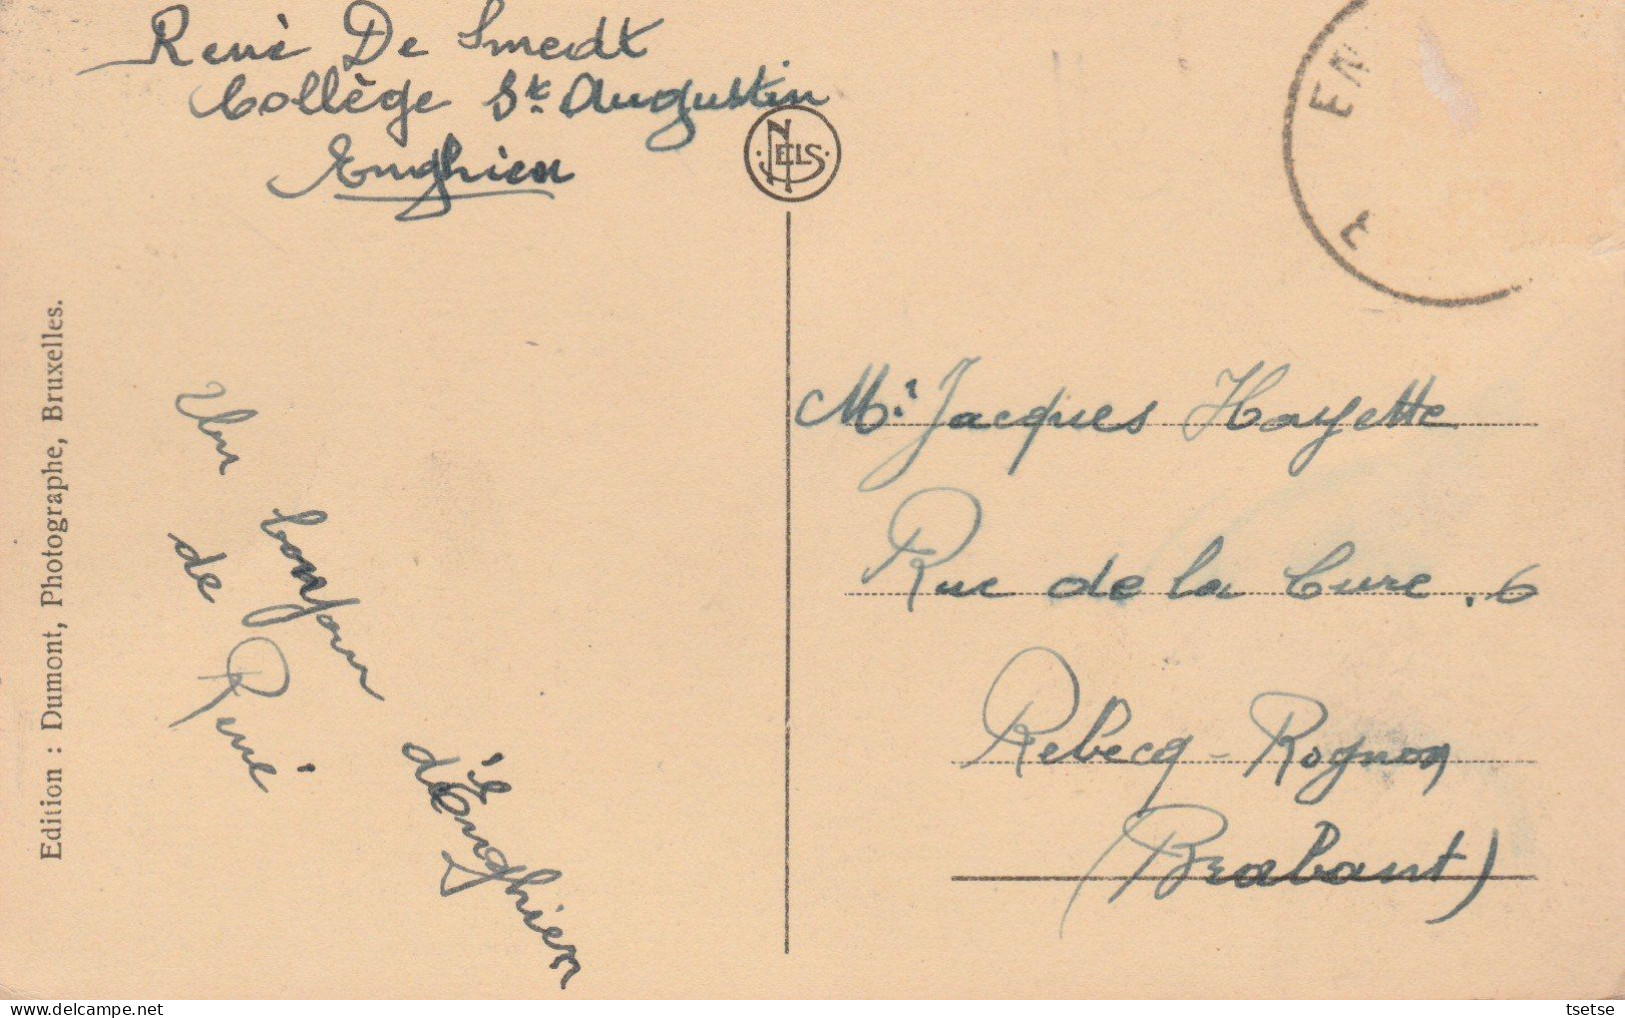 René De Smedt
Collège St. Augustin
Enghien
NELS
EN
E
Edition : Dumont, Photographe, Bruxelles.
Un bonjour d'Enghien
de René
Mr Jacques Hayette
Rue de la Cure. 6
Rebecq-Rognon
(Brabant)
tsetse